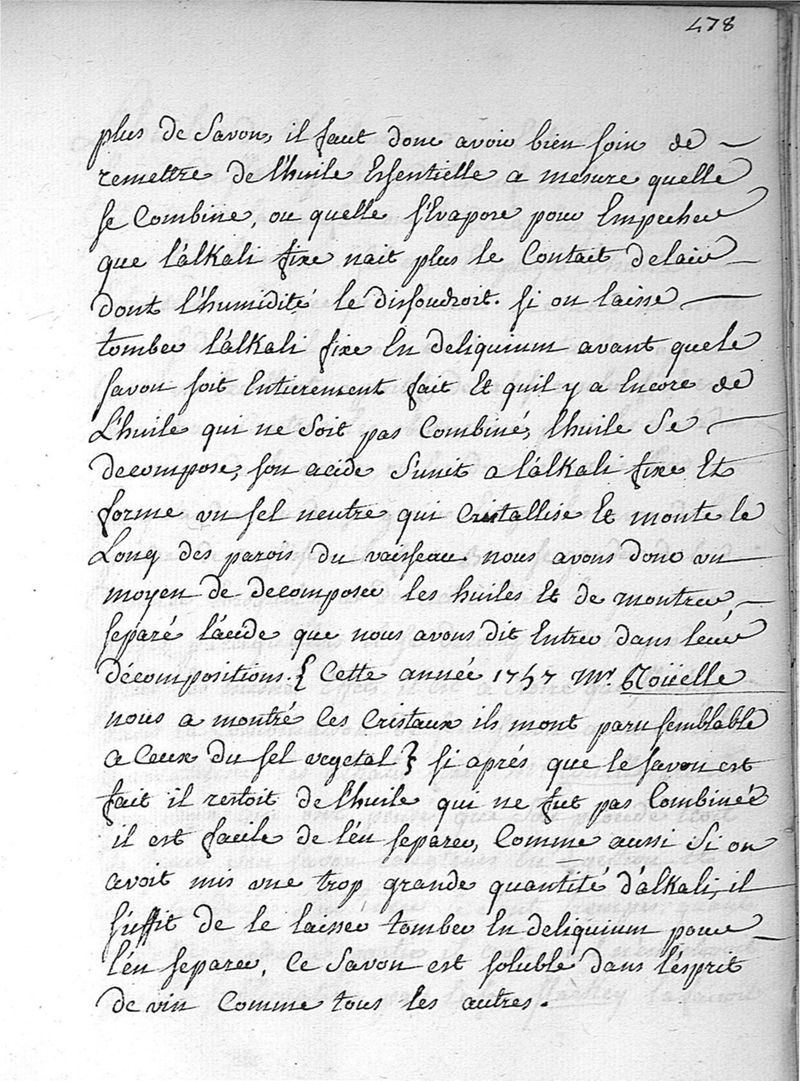 478
plus de Savon, il faut donc avoir bien soin de
remettre de l'huile Essentielle a mesure quelle
se Combine, ou quelle s'Evapore pour Empecher
que l'alkali fixe nait plus le Contact de lair
dont l'humidité le dissoudroit. si on laisse
tomber l'alkali fixe En deliquium avant que le
savon soit Entierement fait Et quil y a Encore de
L'huile qui ne Soit pas Combiné, lhuile Se
decompose, son acide S'unit a l'alkali fixe Et
forme un sel neutre qui Cristallise Et monte le
Long des parois du vaisseau. nous avons donc un
moyen de decomposer les huiles Et de montrer,
separé l'acide que nous avons dit Entrer dans leur
décompositions. { Cette année 1747 Mr. Roüelle
nous a montré Ces Cristaux ils mont paru semblable
a Ceux du sel vegetal } si aprés que le savon est
fait il restoit de l'huile qui ne fut pas Combinée
il est facile de l'en separer, Comme aussi Si on
avoit mis une trop grande quantité d'alkali, il
suffit de le laisser tomber En deliquium pour
l'en separer, Ce Savon est soluble dans l'esprit
de vin Comme tous les autres.